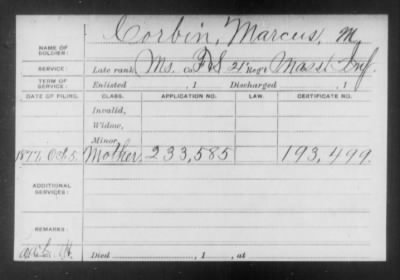 Corbin, Marcus, M
NAME OF SOLDIER:
SERVICE: Late rank, Ms. Co. F&S 21 Reg't Mass Inf.
TERM OF SERVICE: Enlisted , 1 Discharged , 1
DATE OF FILING. CLASS. APPLICATION NO. LAW. CERTIFICATE NO.
Invalid,
Widow,
Minor,
1877, Oct. 5. Mother, 233,585 193,499.
ADDITIONAL SERVICES:
REMARKS:
Died , 1 , at